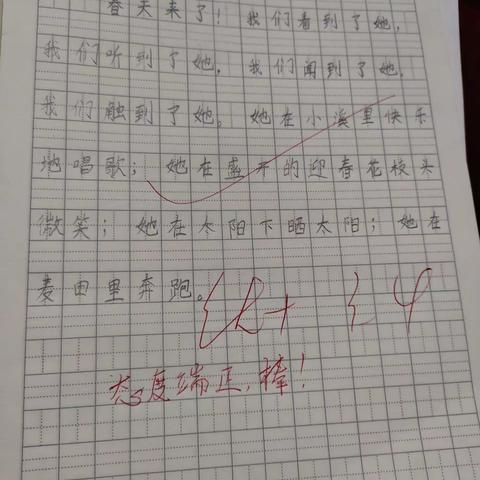 春天来了！我们看到了她，
我们听到了她，我们闻到了她，
我们触到了她。她在小溪里快乐
地唱歌；她在盛开的迎春花枝头
微笑；她在太阳下晒太阳；她在
麦田里奔跑。
态度端正，棒！